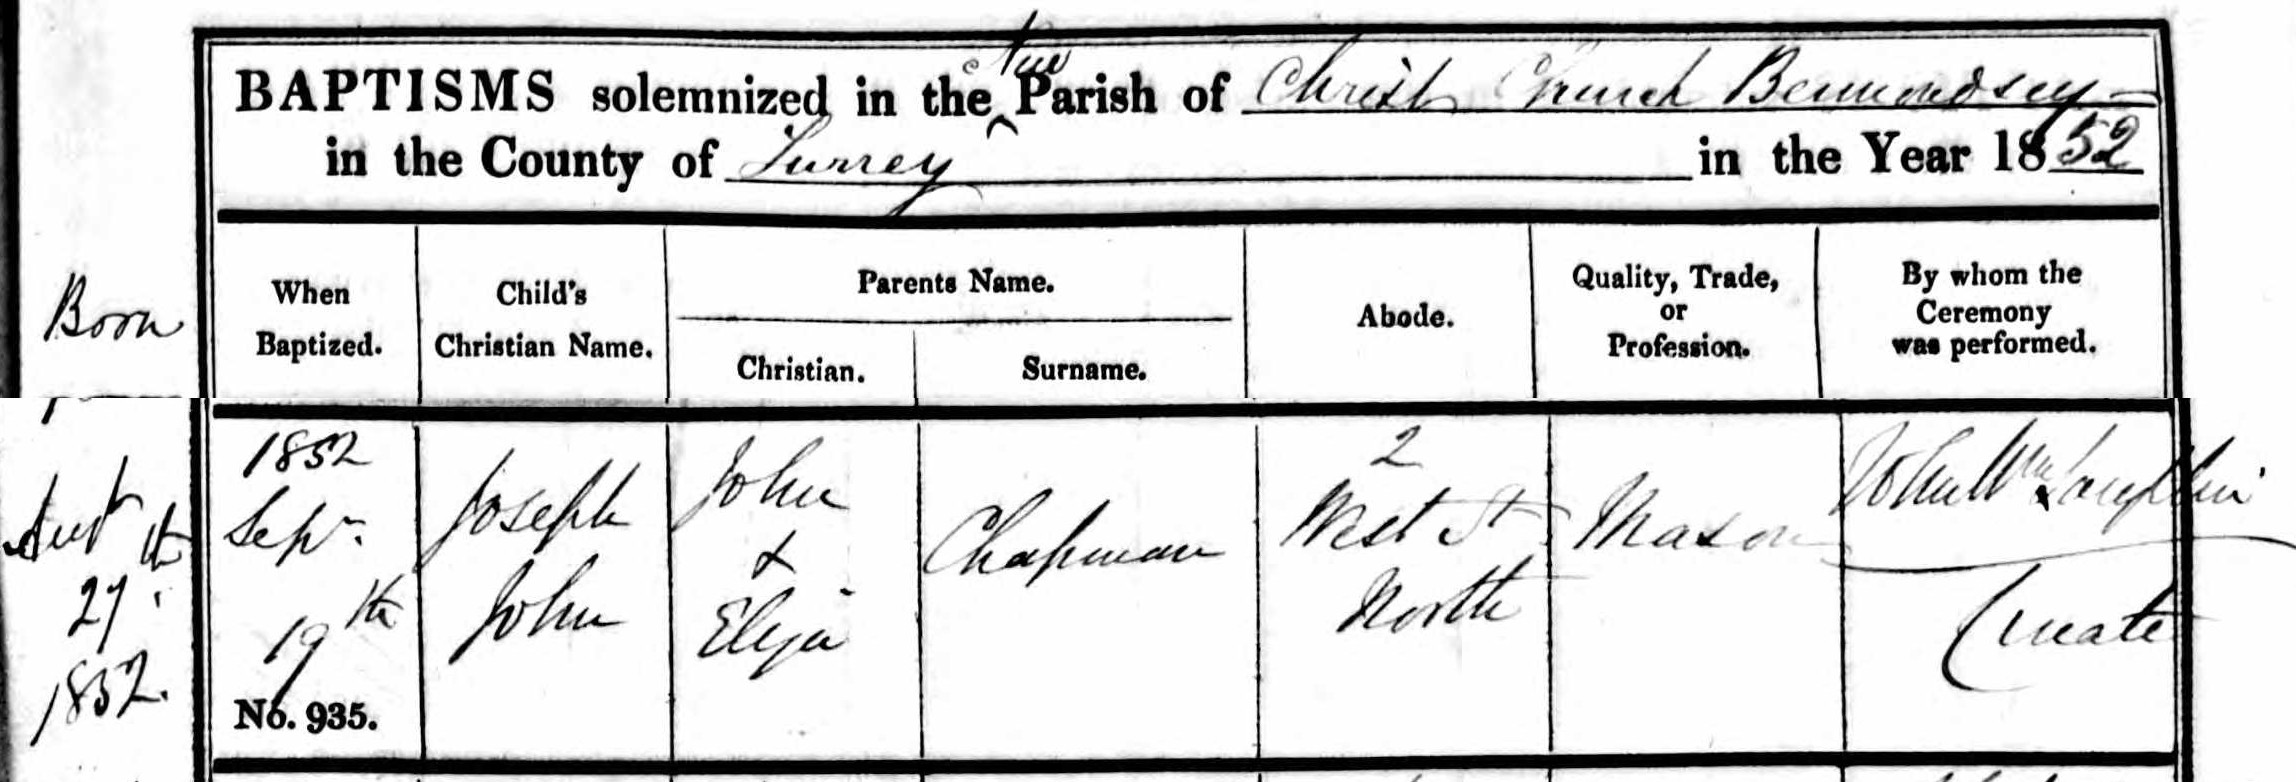 BAPTISMS solemnized in the Parish of Christ Church Bermondsey
in the County of Surrey in the Year 1852
Born
When Baptized.
Child's Christian Name.
Parents Name.
Christian.
Surname.
Abode.
Quality, Trade, or Profession.
By whom the Ceremony was performed.
27
1852.
1852
Sepr.
19th
No. 935.
Joseph
John
John
&
Eliza
Chapman
2
West St
North
Mason
John
Curate